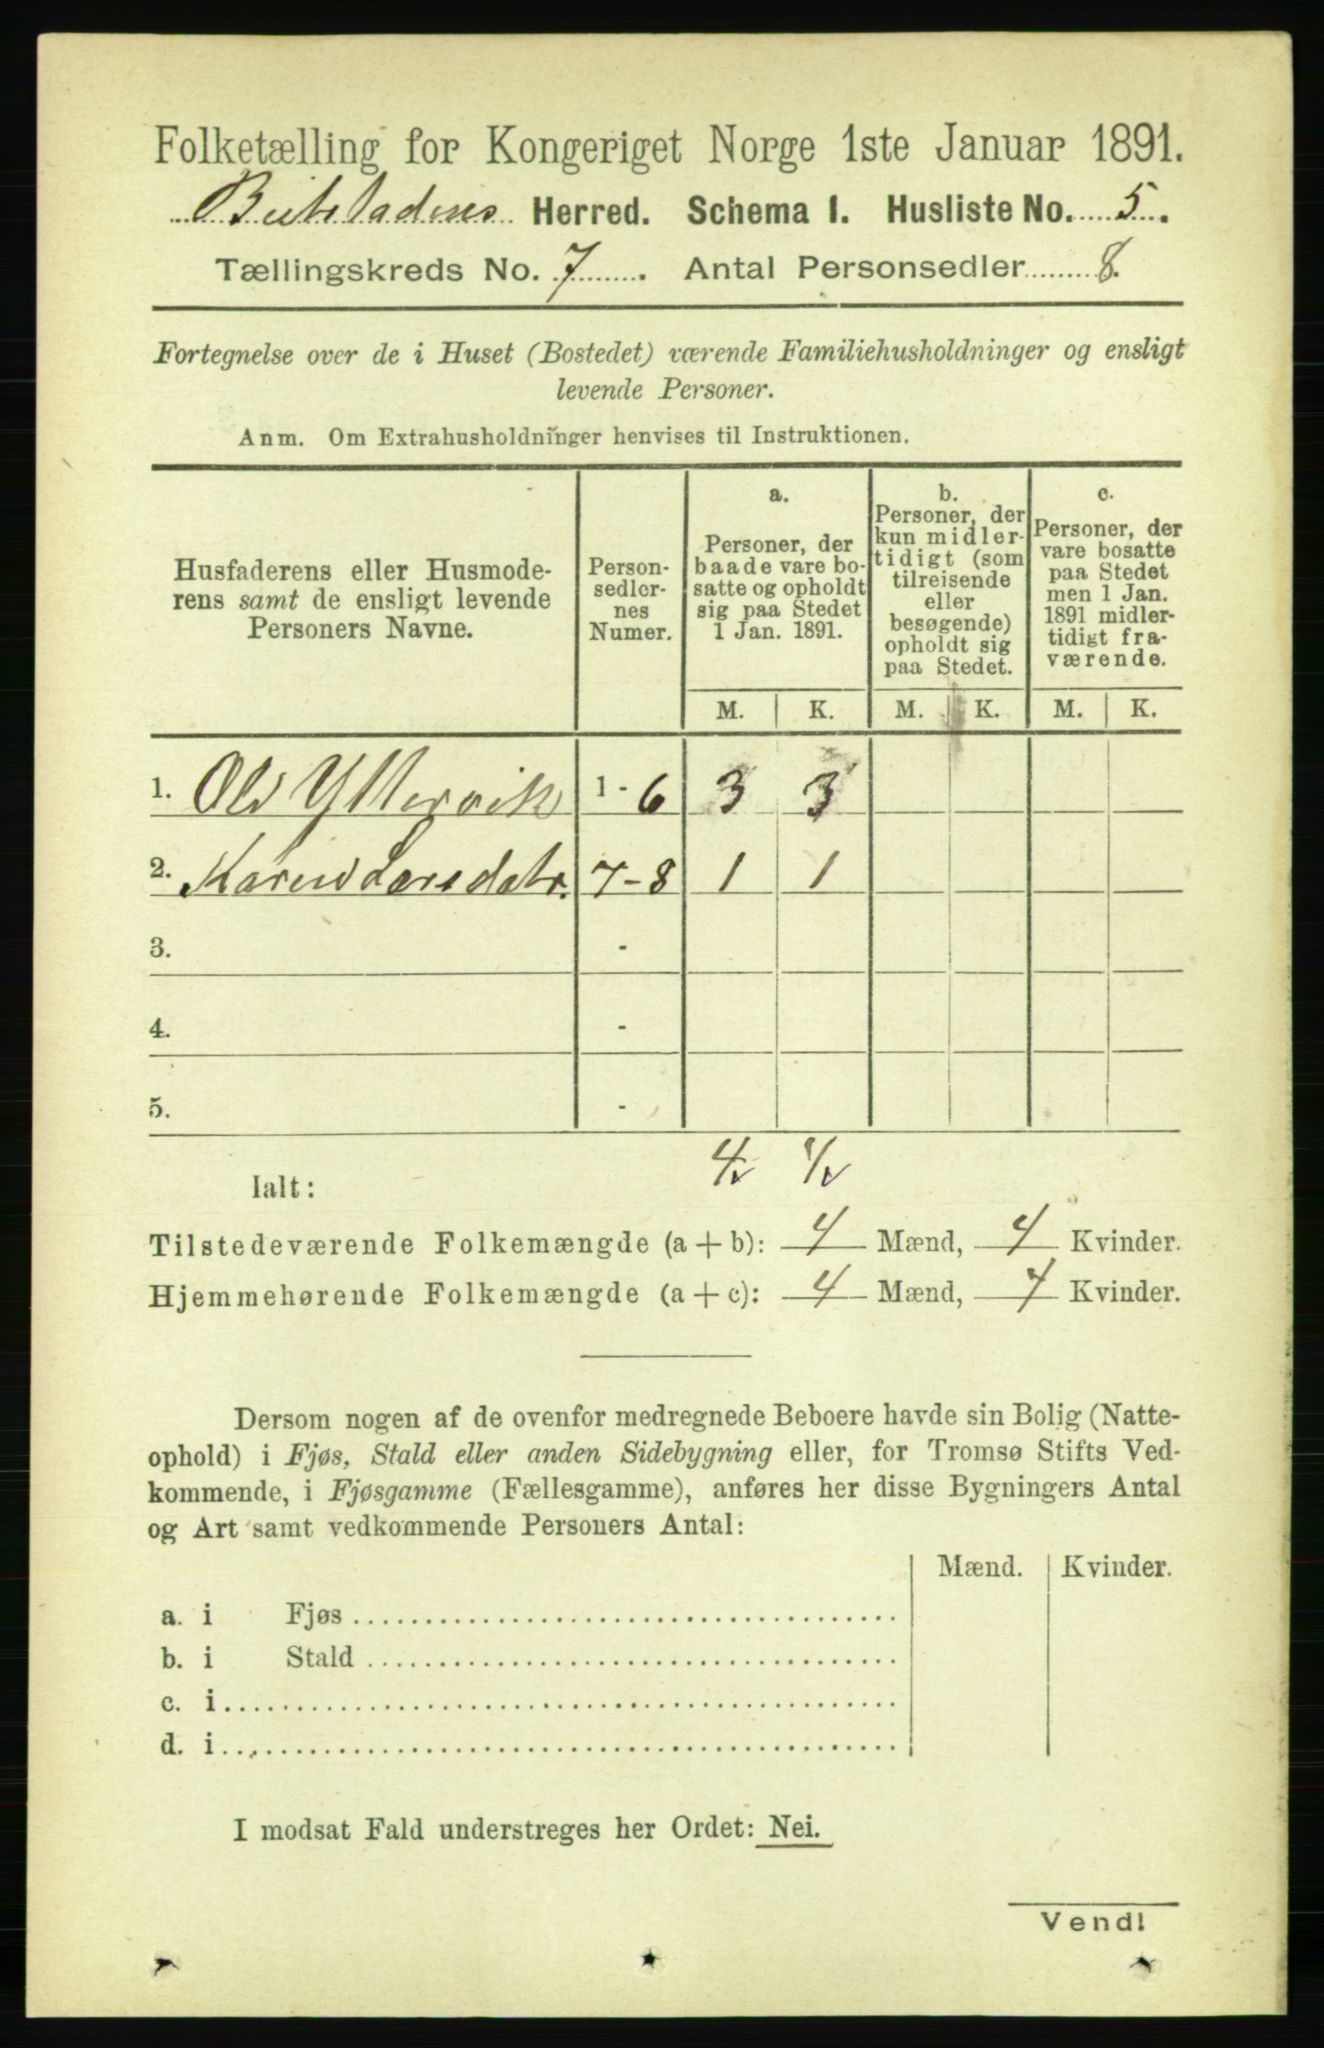 Folketælling for Kongeriget Norge 1ste Januar 1891.
Beitstadens Herred. Schema I. Husliste No. 5.
Tællingskreds No. 7. Antal Personsedler 8.
Fortegnelse over de i Huset (Bostedet) værende Familiehusholdninger og ensligt
levende Personer.
Anm. Om Extrahusholdninger henvises til Instruktionen.
Husfaderens eller Husmode-
rens samt de ensligt levende
Personers Navne.
Person-
sedler-
nes
Numer.
a.
Personer, der
baade vare bo-
satte og opholdt
sig paa Stedet
1 Jan. 1891.
b.
Personer, der
kun midler-
tidigt (som
tilreisende
eller
besøgende)
opholdt sig
paa Stedet.
c.
Personer, der
vare bosatte
paa Stedet
men 1 Jan.
1891 midler-
tidigt fra-
værende.
M. K. M. K. M. K.
1. Ole Yttervik 1 - 6 3 3
2. Karen Larsdatr. 7 - 8 1 1
3. -
4. -
5. -
4 4
Ialt:
Tilstedeværende Folkemængde (a + b): 4 Mænd, 4 Kvinder.
Hjemmehørende Folkemængde (a + c): 4 Mænd, 4 Kvinder.
Dersom nogen af de ovenfor medregnede Beboere havde sin Bolig (Natte-
ophold) i Fjøs, Stald eller anden Sidebygning eller, for Tromsø Stifts Ved-
kommende, i Fjøsgamme (Fællesgamme), anføres her disse Bygningers Antal
og Art samt vedkommende Personers Antal:
Mænd. Kvinder.
a. i Fjøs
b. i Stald
c. i
d. i
I modsat Fald understreges her Ordet: Nei.
Vend!